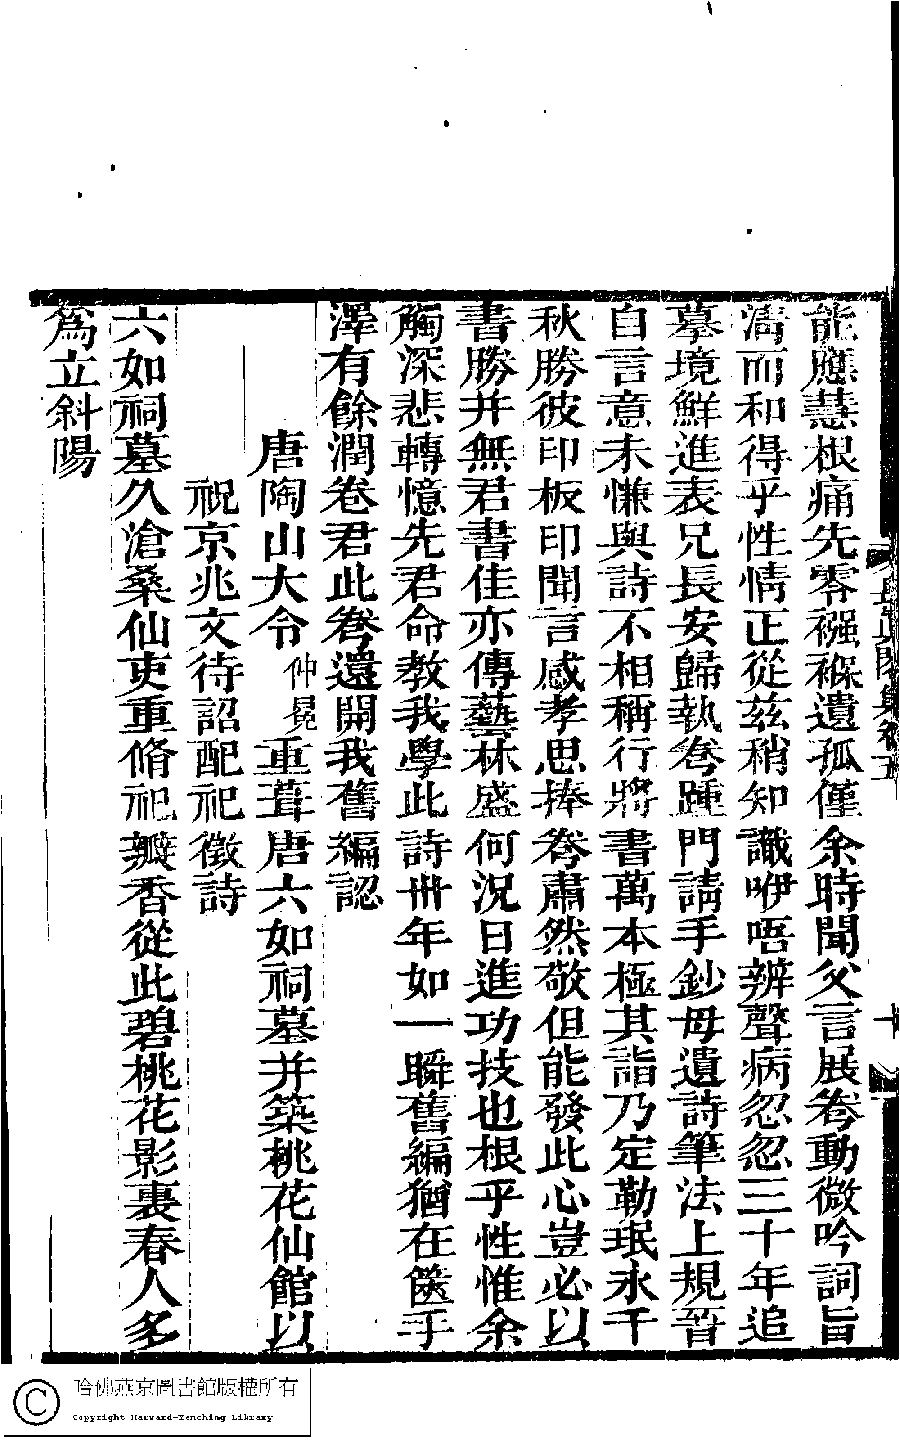 能應慧根痛先零襁褓遺孤僅余時聞父言展卷動微吟詞旨
濤而和得乎性情正從茲稍知識咿唔辨聲病忽忽三十年追
摹境鮮進表兄長安歸執卷踵門請手鈔母遺詩筆法上規晉
自言意未慊與詩不相稱行將書萬本極其詣乃定勒珉永千
秋勝彼印板印聞言感孝思捧卷肅然敬但能發此心豈必以
書勝并無君書佳亦傳藝林盛何況日進功技也根乎性惟余
觸深悲轉憶先君命教我學此詩卌年如一瞬舊編猶在篋手
澤有餘潤卷君此卷還開我舊編認
唐陶山大令仲冕重葺唐六如祠墓并築桃花仙館以
祝京兆文待詔配祀徵詩
六如祠墓久滄桑仙吏重脩祀瓣香從此碧桃花影裏春人多
為立斜陽
十
哈佛燕京圖書館版權所有
Copyright Harvard-Yenching Library